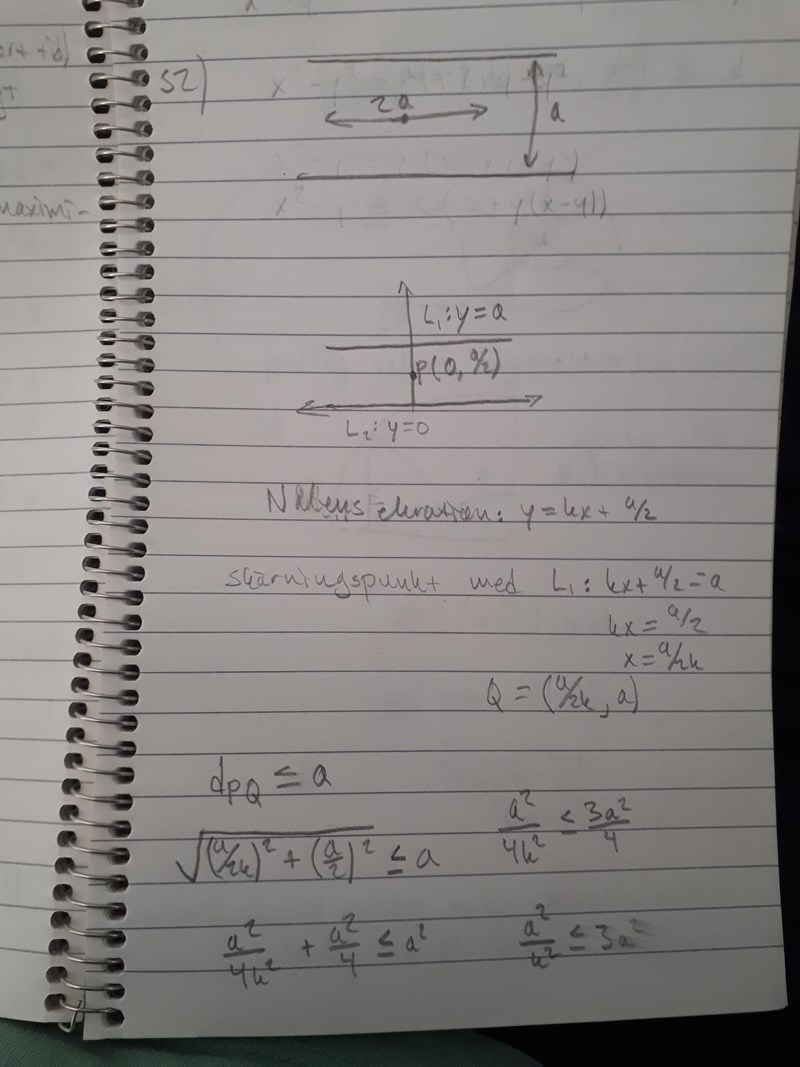 52)
2a
a
L₁: y = a
P(0, a/2)
L₂: y=0
Nålens ekvation: y = kx + a/2
skärningspunkt med L₁: kx + a/2 = a
kx = a/2
x = a/2k
Q = (a/2k, a)
d_PQ ≤ a
√((a/2k)² + (a/2)²) ≤ a
a²/4k² + a²/4 ≤ a²
a²/4k² ≤ 3a²/4
a²/k² ≤ 3a²
maximi-